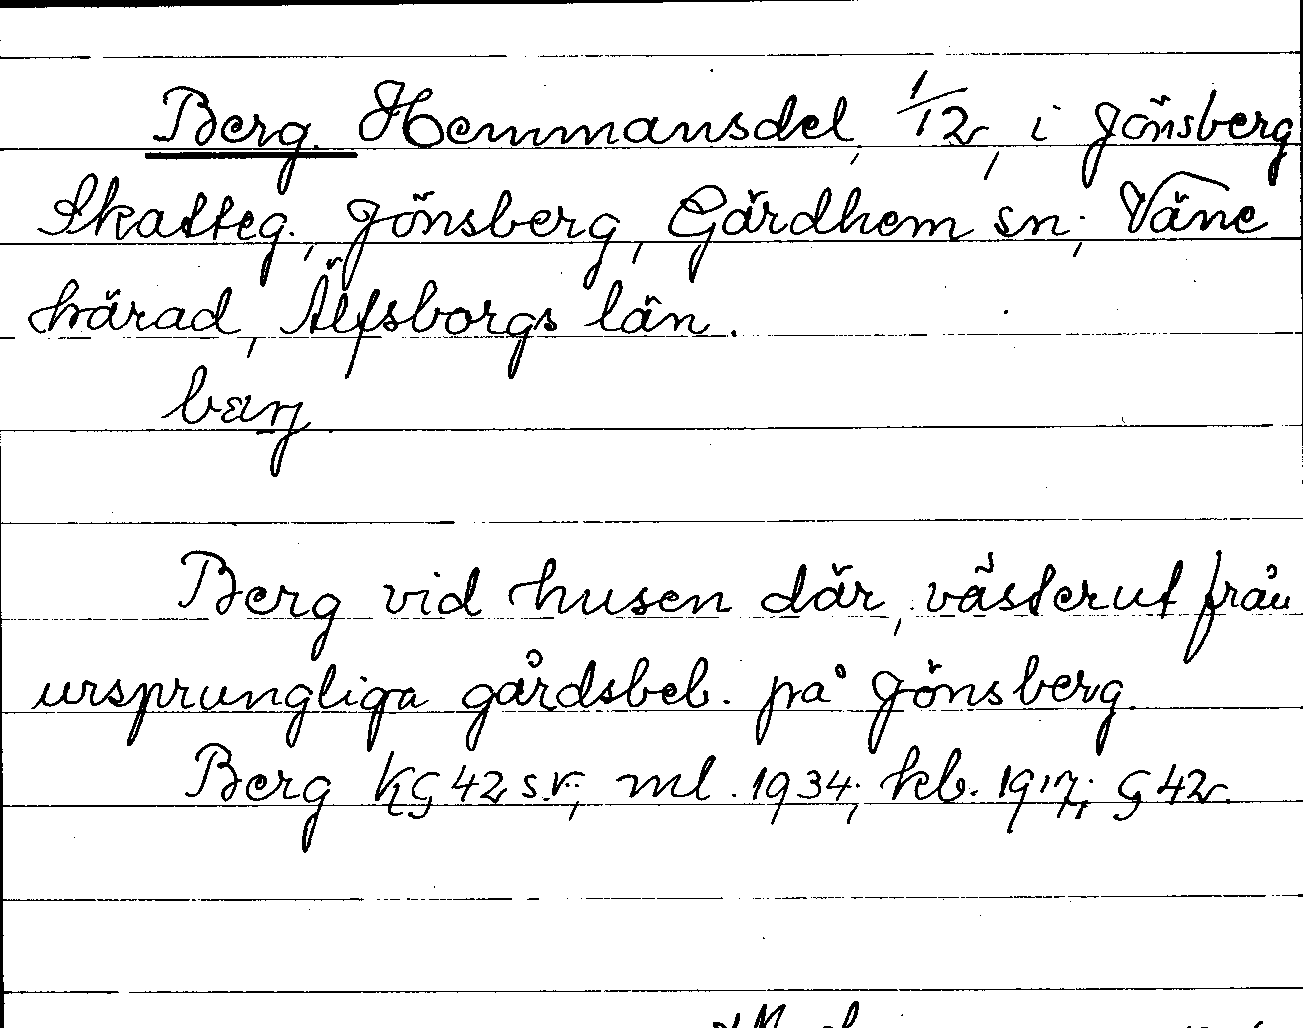 Berg. Hemmansdel, 1/12, i Jönsberg
Skatteg., Jönsberg, Gärdhem sn; Väne
härad, Älfsborgs län.
bærj
Berg vid husen där, västerut från
ursprungliga gårdsbeb. på Jönsberg.
Berg KG 42 s.v.; ml. 1934; kb. 1917; G 42.